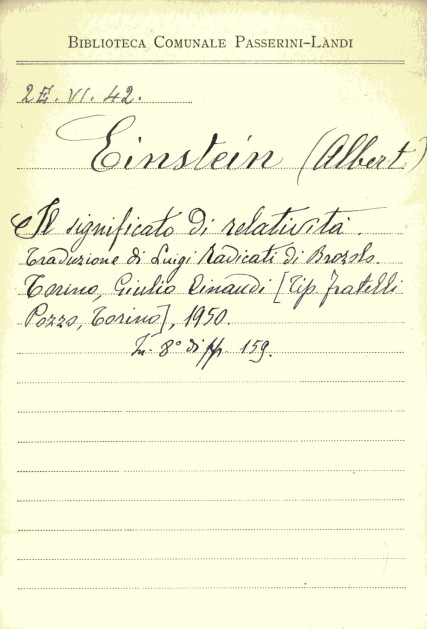 BIBLIOTECA COMUNALE PASSERINI-LANDI
2E. VI. 42.
Einstein (Albert)
Il significato di relatività.
Traduzione di Luigi Radicati di Brozolo.
Torino, Giulio Einaudi [Tip. Fratelli
Pozzo, Torino], 1950.
In 8° di pp. 159.